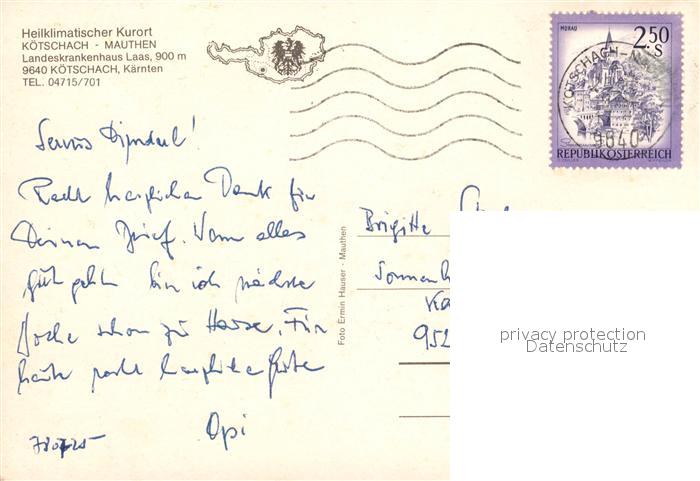 Heilklimatischer Kurort
KÖTSCHACH - MAUTHEN
Landeskrankenhaus Laas, 900 m
9640 KÖTSCHACH, Kärnten
TEL. 04715/701
MURAU
2.50
S
KÖTSCHACH-M
9640
REPUBLIK ÖSTERREICH
Servus
Recht herzlichen Dank für
Deinen Brief. Wenn alles
gut geht bin ich nächste
Woche schon zu Hause. Für
heute recht herzliche Grüße
Opi
Foto Ermin Hauser - Mauthen
Brigitte
Sonnen
952
privacy protection
Datenschutz